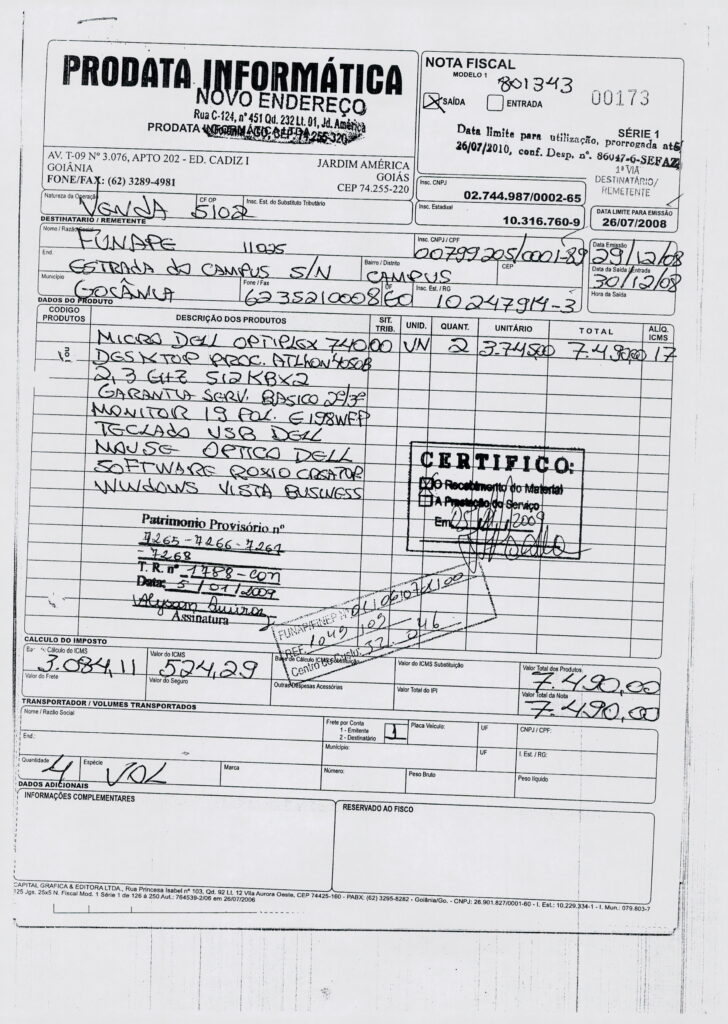 PRODATA INFORMÁTICA
NOVO ENDEREÇO
Rua C-124, nº 451 Qd. 232 Lt. 01, Jd. América
AV. T-09 Nº 3.076, APTO 202 - ED. CADIZ I
JARDIM AMÉRICA
GOIÂNIA
GOIÁS
FONE/FAX: (62) 3289-4981
CEP 74.255-220
NOTA FISCAL
MODELO 1
801343
00173
X SAÍDA
ENTRADA
SÉRIE 1
Data limite para utilização, prorrogada até
26/07/2010, conf. Desp. nº 86047-6-SEFAZ
1ª VIA
DESTINATÁRIO/
REMETENTE
Insc. CNPJ
02.744.987/0002-65
Insc. Estadual
10.316.760-9
DATA LIMITE PARA EMISSÃO
26/07/2008
Natureza da Operação
VENDA
CFOP
5102
Insc. Est. do Substituto Tributário
DESTINATÁRIO / REMETENTE
Nome / Razão Social
FUNAPE 11025
Insc. CNPJ / CPF
00799205/0001-89
Data Emissão
29/12/08
End.
ESTRADA do CAMPUS S/N
Bairro / Distrito
CAMPUS
CEP
Data da Saída / Entrada
30/12/08
Município
GOIÂNIA
Fone / Fax
6235210008
UF
GO
Insc. Est. / RG
10247914-3
Hora da Saída
DADOS DO PRODUTO
CÓDIGO PRODUTOS
DESCRIÇÃO DOS PRODUTOS
SIT. TRIB.
UNID.
QUANT.
UNITÁRIO
TOTAL
ALÍQ. ICMS
MICRO DELL OPTIPLEX 740 00 UN 2 3.745,00 7.490,00 17
DESKTOP PROC. ATLHON 4050B
2,3 GHZ 512KBX2
GARANTIA SERV. BASICO 2º/3º
MONITOR 19 POL. E198WFP
TECLADO USB DELL
MOUSE OPTICO DELL
SOFTWARE ROXIO CREATOR
WINDOWS VISTA BUSINESS
CERTIFICO:
O Recebimento do Material
A Prestação do Serviço
Em 2009
Patrimonio Provisório nº
7265-7266-7267
-7268
T. R. nº 1788-CON
Data: 5/01/2009
Assinatura
FUNAPE/FINEP Nº
REF. 1049 109
Centro de Custo: 32.046
CALCULO DO IMPOSTO
Cálculo do ICMS
3.084,11
Valor do ICMS
524,29
Base de Cálculo ICMS Substituição
Valor do ICMS Substituição
Valor Total dos Produtos
7.490,00
Valor do Frete
Valor do Seguro
Outras Despesas Acessórias
Valor Total do IPI
Valor Total da Nota
7.490,00
TRANSPORTADOR / VOLUMES TRANSPORTADOS
Nome / Razão Social
Frete por Conta
1 - Emitente
2 - Destinatário
1
Placa Veículo:
UF
CNPJ / CPF:
End.:
Município:
UF
I. Est. / RG:
Quantidade
4
Espécie
VOL
Marca
Número:
Peso Bruto
Peso líquido
DADOS ADICIONAIS
INFORMAÇÕES COMPLEMENTARES
RESERVADO AO FISCO
CAPITAL GRAFICA & EDITORA LTDA., Rua Princesa Isabel nº 103, Qd. 92 Lt. 12 Vila Aurora Oeste, CEP 74425-160 - PABX: (62) 3295-8282 - Goiânia/Go. - CNPJ: 26.901.827/0001-60 - I. Est.: 10.229.334-1 - I. Mun.: 079.803-7
125 Jgs. 25x5 N. Fiscal Mod. 1 Série 1 de 126 à 250 Aut.: 764539-2/06 em 26/07/2006